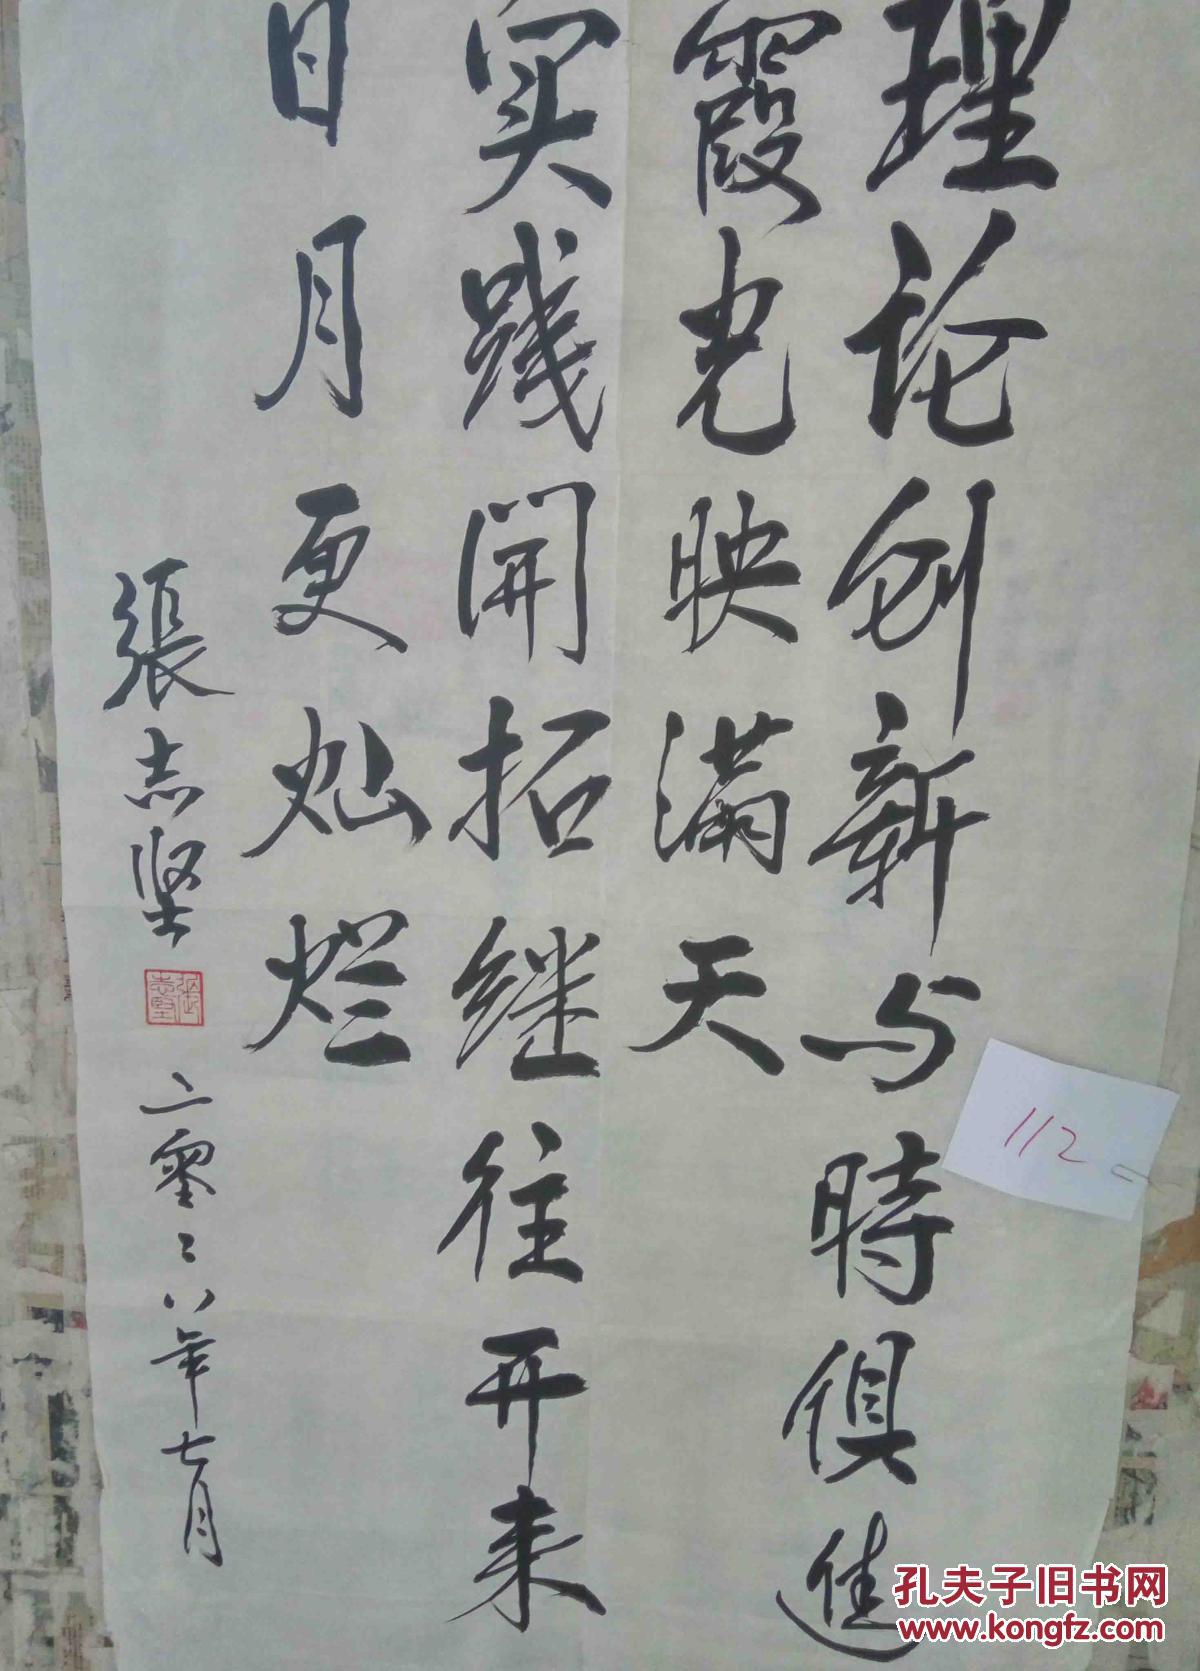 理论创新与時俱進
霞光映满天
实践開拓继往开来
日月更灿烂
張志坚
張志堅
二零零八年七月
112
孔夫子旧书网
www.kongfz.com